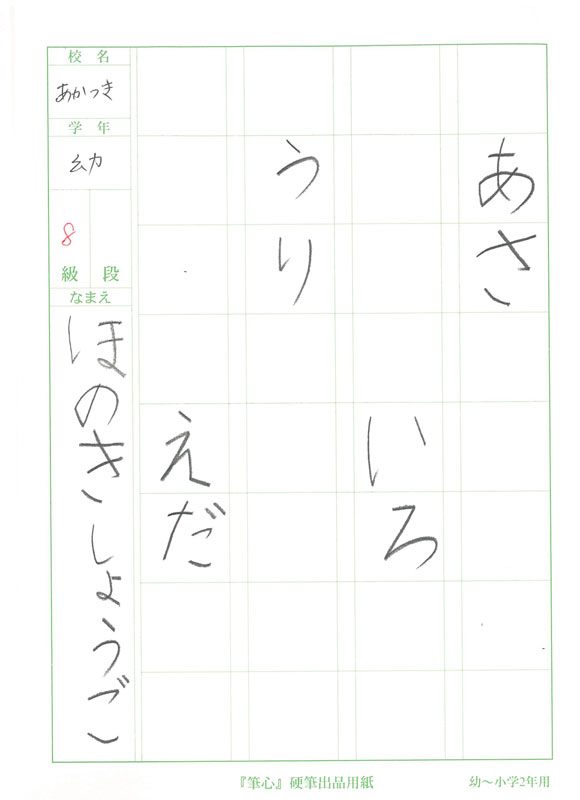 あさ
いろ
うり
えだ
校名
あかつき
学年
幼
8
級 段
なまえ
ほのきしょうご
『筆心』硬筆出品用紙
幼〜小学2年用